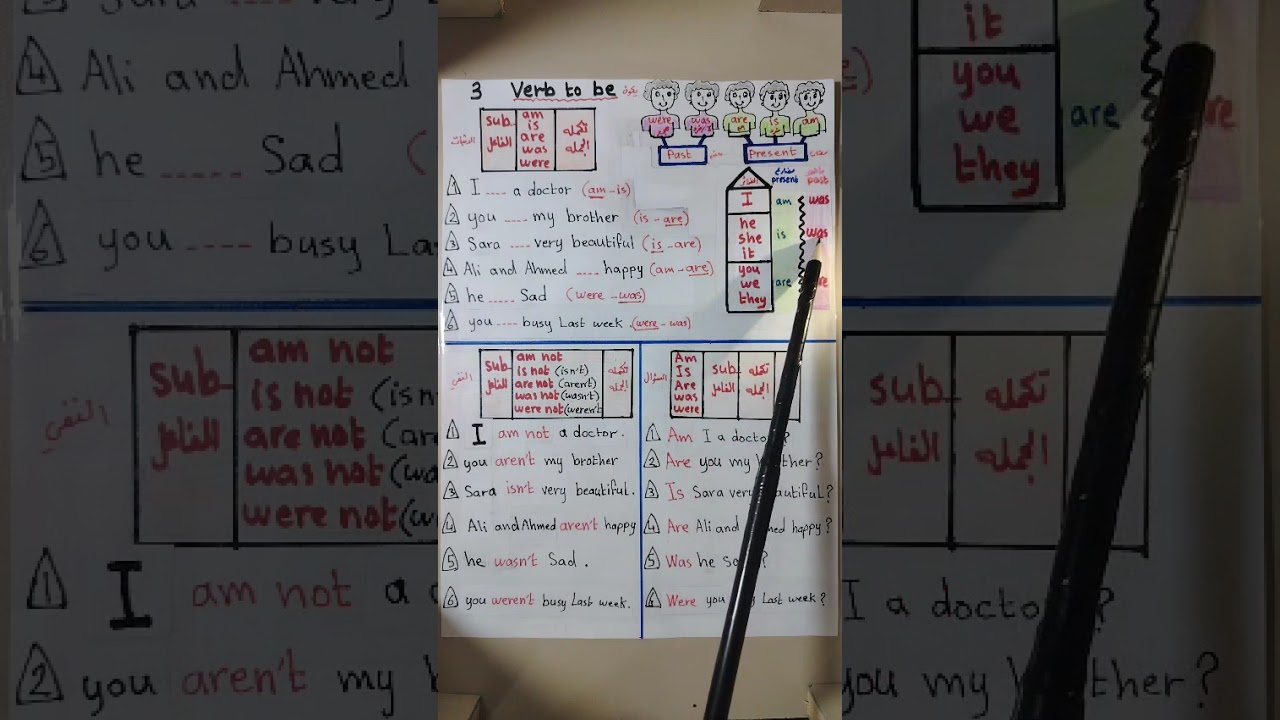 3 Verb to be يكون
were was are is am
Past ماضي Present مضارع
الاثبات
sub الفاعل
am
is
are
was
were
تكملة الجملة
1 I .... a doctor (am-is)
2 you .... my brother (is-are)
3 Sara .... very beautiful (is-are)
4 Ali and Ahmed .... happy (am-are)
5 he ..... Sad (were-was)
6 you .... busy Last week (were-was)
present past
I am was
he
she is was
it
you
we are
they
النفي
sub الفاعل
am not
is not (isn't)
are not (aren't)
was not (wasn't)
were not (weren't
تكملة الجملة
1 I am not a doctor.
2 you aren't my brother
3 Sara isn't very beautiful.
4 Ali and Ahmed aren't happy
5 he wasn't Sad.
6 you weren't busy Last week.
السؤال
Am
Is
Are
was
were
sub الفاعل
تكملة الجملة
1 Am I a doctor?
2 Are you my brother?
3 Is Sara very beautiful?
4 Are Ali and Ahmed happy?
5 Was he Sad?
6 Were you Last week?